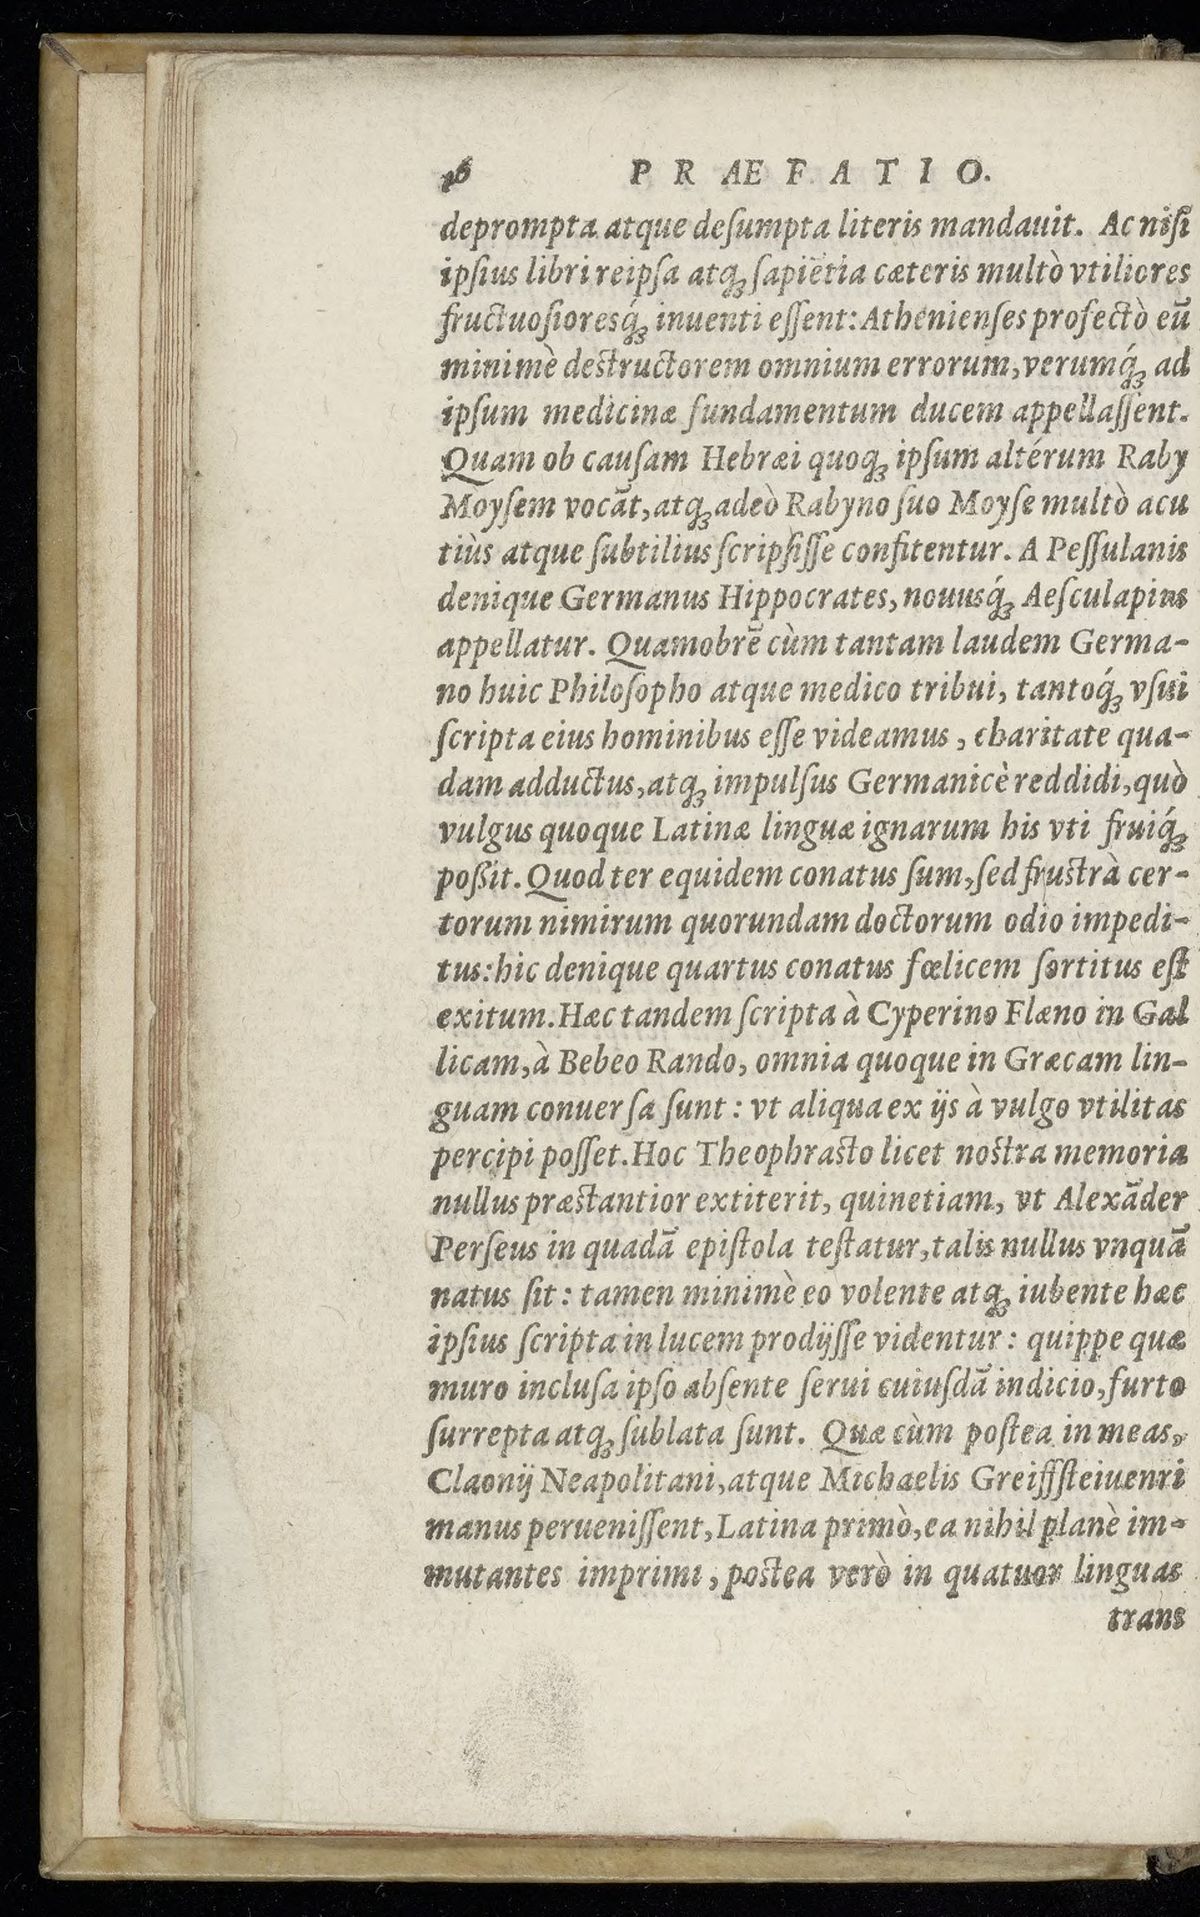 16 PRÆFATIO.
deprompta atque deſumpta literis mandauit. Ac niſi
ipſius libri reipſa atqꝫ ſapiẽtia cæteris multò vtiliores
fructuoſioresq́ꝫ inuenti eſſent: Athenienſes profectò eũ
minimè destructorem omnium errorum, verumq́ꝫ ad
ipſum medicinæ fundamentum ducem appellaſſent.
Quam ob cauſam Hebræi quoqꝫ ipſum altérum Raby
Moyſem vocãt, atqꝫ adeò Rabyno ſuo Moyſe multò acu
tiùs atque ſubtilius ſcripſiſſe confitentur. A Peſſulanis
denique Germanus Hippocrates, nouusq́ꝫ Aeſculapius
appellatur. Quamobrẽ cùm tantam laudem Germa-
no huic Philoſopho atque medico tribui, tantoq́ꝫ vſui
ſcripta eius hominibus eſſe videamus, charitate qua-
dam adductus, atqꝫ impulſus Germanicè reddidi, quò
vulgus quoque Latinæ linguæ ignarum his vti fruiq́ꝫ
poßit. Quod ter equidem conatus ſum, ſed frustrà cer-
torum nimirum quorundam doctorum odio impedi-
tus: hic denique quartus conatus fœlicem ſortitus eſt
exitum. Hæc tandem ſcripta à Cyperino Flæno in Gal
licam, à Bebeo Rando, omnia quoque in Græcam lin-
guam conuerſa ſunt: vt aliqua ex ijs à vulgo vtilitas
percipi poſſet. Hoc Theophrasto licet nostra memoria
nullus præstantior extiterit, quinetiam, vt Alexãder
Perſeus in quadã epiſtola teſtatur, talis nullus vnquã
natus ſit: tamen minimè eo volente atqꝫ iubente hæc
ipſius ſcripta in lucem prodijſſe videntur: quippe quæ
muro incluſa ipſo abſente ſerui cuiuſdã indicio, furto
ſurrepta atqꝫ ſublata ſunt. Quæ cùm poſtea in meas,
Claonij Neapolitani, atque Michaelis Greiffſteiuenri
manus perueniſſent, Latina primò, ea nihil planè im-
mutantes imprimi, postea verò in quatuor linguas
trans